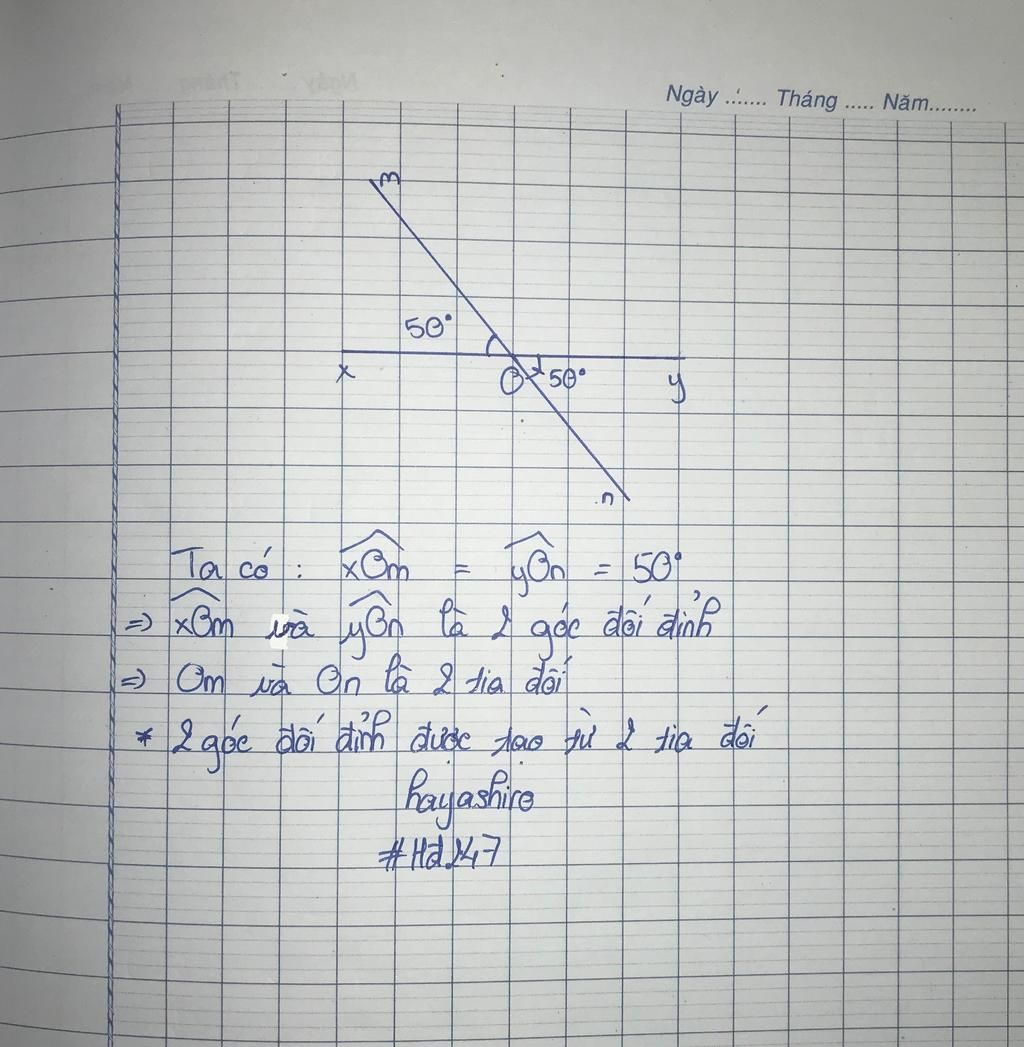 Ngày ....... Tháng ..... Năm........
m
50°
x
O
50°
y
n
Ta có : xOm = yOn = 50°
=> xOm và yOn là 2 góc đối đỉnh
=> Om và On là 2 tia đối
* 2 góc đối đỉnh được tạo từ 2 tia đối
hayashire
#Hd247